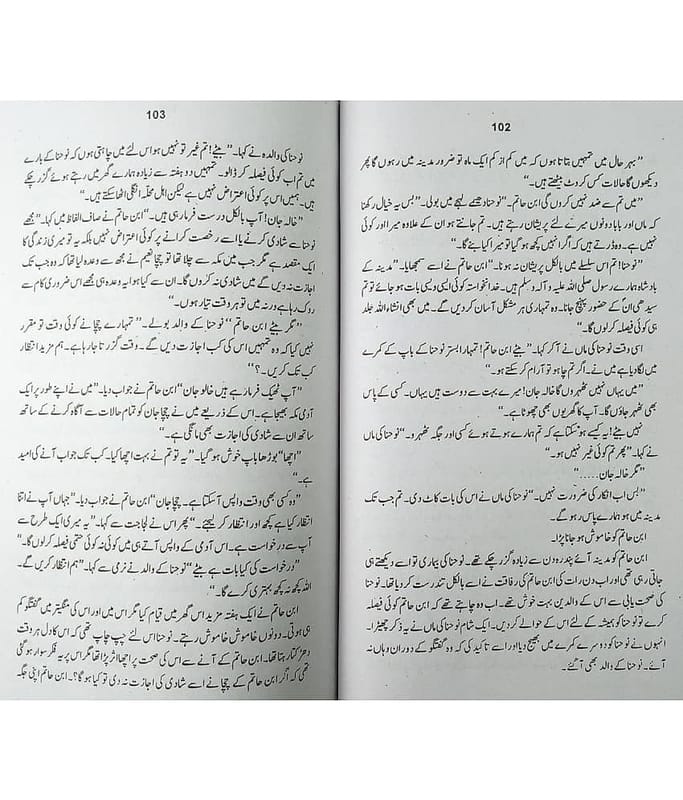 102
”بہر حال میں تمہیں بتاتا ہوں کہ میں کم از کم ایک ماہ تو ضرور مدینہ میں رہوں گا پھر
دیکھوں گا حالات کس کروٹ بیٹھتے ہیں۔“
”میں تم سے ضد نہیں کروں گی ابن حاتم۔“ نوحنا دھیمے لہجے میں بولی۔ ”بس یہ خیال رکھنا
کہ ماں اور بابا دونوں میرے لئے پریشان رہتے ہیں۔ تم جانتے ہو ان کے علاوہ میرا اور کوئی
نہیں ہے۔ وہ ڈرتے ہیں کہ اگر انہیں کچھ ہو گیا تو میرا کیا بنے گا۔“
”نوحنا! تم اس سلسلے میں بالکل پریشان نہ ہونا۔“ ابن حاتم نے اسے سمجھایا۔ ”مدینہ کے
بادشاہ ہمارے رسول صلی اللہ علیہ و آلہ وسلم ہیں۔ خدانخواستہ کوئی ایسی ویسی بات ہو جائے تو تم
سیدھی ان کے حضور پہنچ جانا۔ وہ تمہاری ہر مشکل آسان کر دیں گے۔ میں بھی انشاء اللہ جلد
ہی کوئی فیصلہ کر لوں گا۔“
اسی وقت نوحنا کی ماں نے آ کر کہا۔ ”بیٹے ابن حاتم! تمہارا بستر نوحنا کے باپ کے کمرے
میں لگا دیا ہے میں نے۔ اگر تم چاہو تو آرام کر سکتے ہو۔“
”میں یہاں نہیں ٹھہروں گا خالہ جان! میرے بہت سے دوست ہیں یہاں۔ کسی کے پاس
بھی ٹھہر جاؤں گا۔ آپ کا گھر یوں بھی چھوٹا ہے۔“
نہیں بیٹے! یہ کیسے ہو سکتا ہے کہ تم ہمارے ہوتے ہوئے کسی اور جگہ ٹھہرو۔“ نوحنا کی ماں
نے کہا۔ ”پھر تم کوئی غیر نہیں ہو۔“
”مگر خالہ جان.......“
”بس اب انکار کی ضرورت نہیں۔“ نوحنا کی ماں نے اس کی بات کاٹ دی۔ تم جب تک
مدینہ میں ہو ہمارے پاس رہو گے۔
ابن حاتم کو خاموش ہو جانا پڑا۔
ابن حاتم کو مدینہ آئے پندرہ دن سے زیادہ گزر چکے تھے۔ نوحنا کی بیماری تو اسے دیکھتے ہی
جاتی رہی تھی اور اب دن رات کی ابن حاتم کی رفاقت نے اسے بالکل تندرست کر دیا تھا۔ نوحنا
کی صحت یابی سے اس کے والدین بہت خوش تھے۔ اب وہ چاہتے تھے کہ ابن حاتم کوئی فیصلہ
کرے تو نوحنا کو ہمیشہ کے لئے اس کے حوالے کر دیں۔ ایک شام نوحنا کی ماں نے یہ ذکر چھیڑا۔
انہوں نے نوحنا کو دوسرے کمرے میں بھیج دیا اور اسے تاکید کی کہ وہ گفتگو کے دوران وہاں نہ
آئے۔ نوحنا کے والد بھی آ گئے۔
103
نوحنا کی والدہ نے کہا۔ ”بیٹے! تم غیر تو نہیں ہو اس لئے میں چاہتی ہوں کہ نوحنا کے بارے
میں تم اب کوئی فیصلہ کر ڈالو۔ تمہیں دو ہفتہ سے زیادہ ہمارے گھر میں رہتے ہوئے گزر چکے
ہیں۔ ہمیں اس پر کوئی اعتراض نہیں ہے لیکن اہل محلہ انگلی اٹھا سکتے ہیں۔“
”خالہ جان! آپ بالکل درست فرما رہی ہیں۔“ ابن حاتم نے صاف الفاظ میں کہا۔ ”مجھے
نوحنا سے شادی کرنے یا اسے رخصت کرانے پر کوئی اعتراض نہیں بلکہ یہ تو میری زندگی کا
ایک مقصد ہے مگر جب میں مکہ سے چلا تھا تو چچا نعیم نے مجھ سے وعدہ لیا تھا کہ وہ جب تک
اجازت نہ دیں گے میں شادی نہ کروں گا۔ ان سے کیا ہوا یہ وعدہ ہی مجھے اس ضروری کام سے
روک رہا ہے ورنہ میں تو ہر وقت تیار ہوں۔“
”مگر بیٹے ابن حاتم“ نوحنا کے والد بولے۔ ”تمہارے چچا نے کوئی وقت تو مقرر
نہیں کیا کہ وہ تمہیں اس کی کب اجازت دیں گے۔ وقت گزرتا جا رہا ہے۔ ہم مزید انتظار
کب تک کریں۔؟“
”آپ ٹھیک فرما رہے ہیں خالو جان“ ابن حاتم نے جواب دیا۔ ”میں نے اپنے طور پر ایک
آدمی مکہ بھیجا ہے۔ اس کے ذریعے میں نے چچا جان کو تمام حالات سے آگاہ کرنے کے ساتھ
ساتھ ان سے شادی کی اجازت بھی مانگی ہے۔“
”اچھا“ بوڑھا باپ خوش ہو گیا۔ ”یہ تو تم نے بہت اچھا کیا۔ کب تک جواب آنے کی امید
ہے۔“
”وہ کسی بھی وقت واپس آ سکتا ہے۔ چچا جان“ ابن حاتم نے جواب دیا۔ ”جہاں آپ نے اتنا
انتظار کیا ہے کچھ اور انتظار کر لیجئے۔“ پھر اس نے لجاجت سے کہا۔ ”یہ میری ایک طرح سے
آپ سے درخواست ہے۔ اس آدمی کے واپس آتے ہی میں کوئی نہ کوئی حتمی فیصلہ کر لوں گا۔“
”درخواست کی کیا بات ہے بیٹے“ نوحنا کے والد نے نرمی سے کہا۔ ”ہم انتظار کریں گے۔
اللہ کچھ نہ کچھ بہتری کرے گا۔“
ابن حاتم نے ایک ہفتہ مزید اس گھر میں قیام کیا مگر اس میں اور اس کی منگیتر میں گفتگو کم
ہی ہوتی۔ دونوں خاموش خاموش رہتے۔ نوحنا اس لئے چپ چاپ تھی کہ اس کا دل ہر وقت
دھڑکتا رہتا تھا۔ ابن حاتم کے آنے سے اس کی صحت پر اچھا اثر پڑا تھا مگر اس پر یہ فکر سوار ہو گئی
تھی کہ اگر ابن حاتم کے چچا نے اسے شادی کی اجازت نہ دی تو کیا ہو گا؟۔ ابن حاتم اپنی جگہ